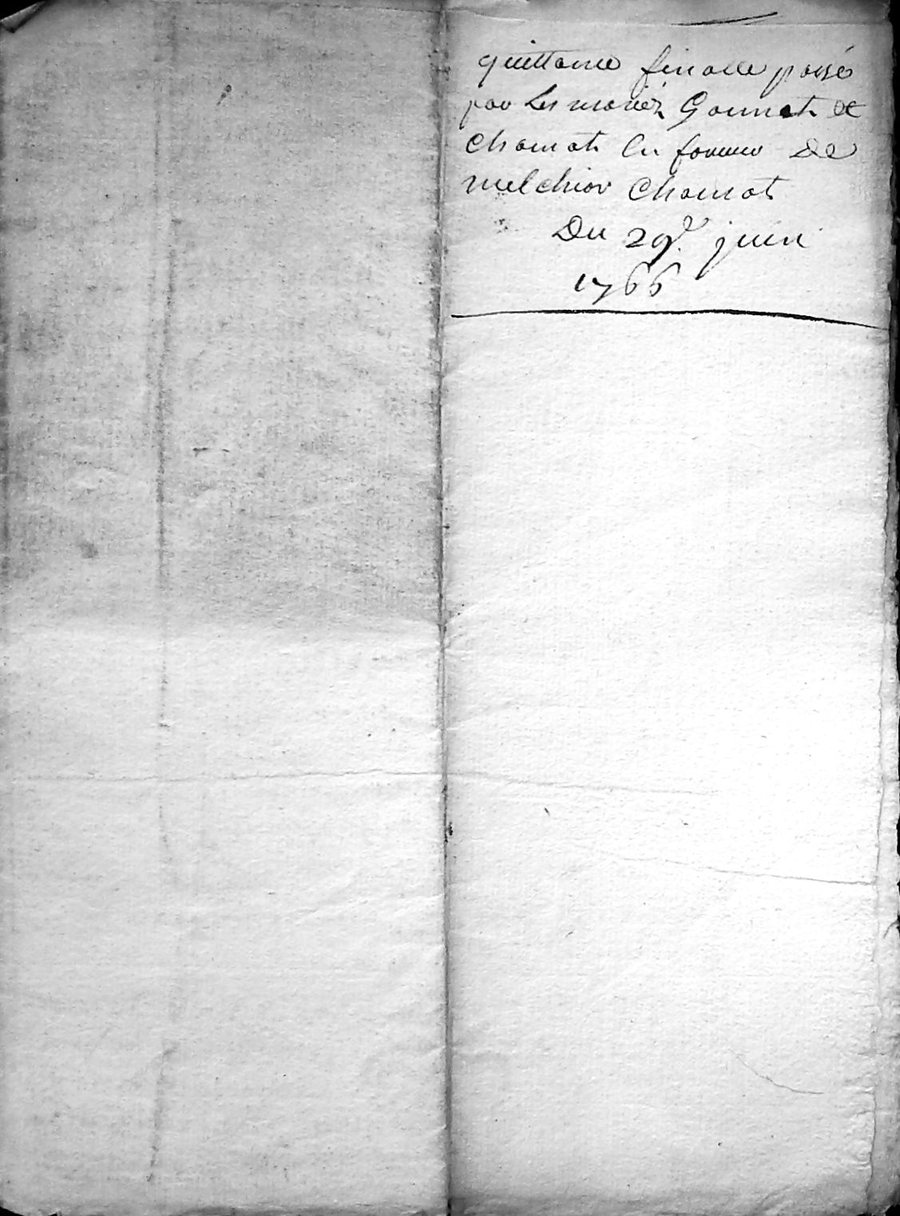 quittance finalle passé
par Les mariéz Gonnet et
Chamat en faveur De
melchior Chamat
Du 29e. juin
1766